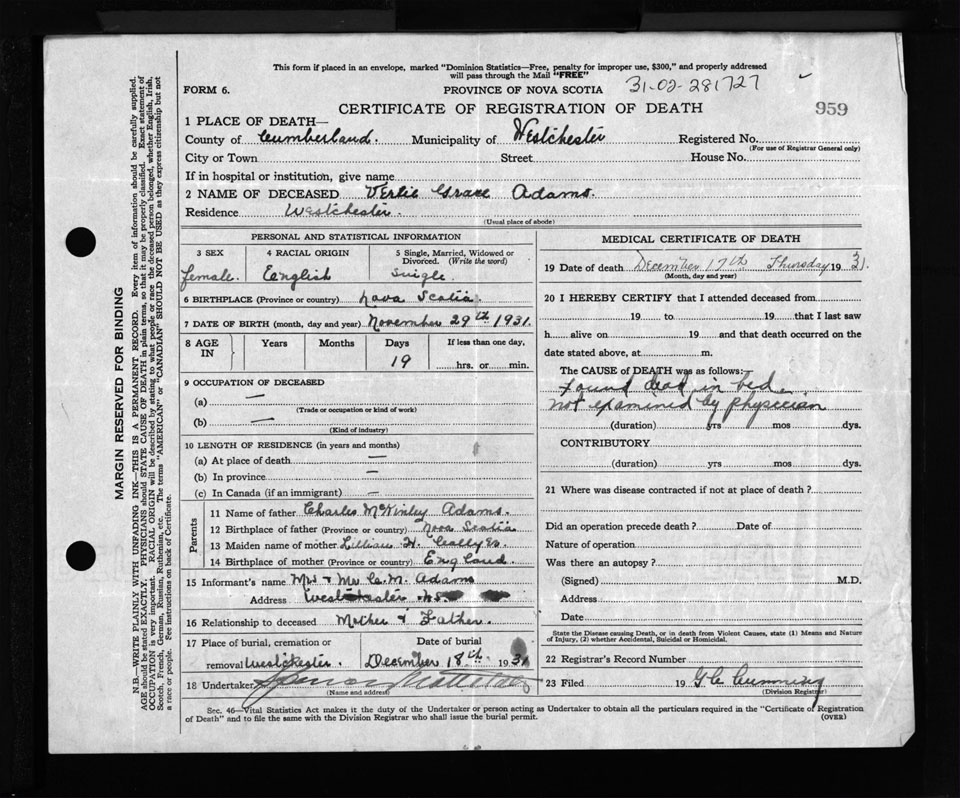 This form if placed in an envelope, marked "Dominion Statistics—Free, penalty for improper use, $300," and properly addressed
will pass through the Mail "FREE"
FORM 6.
PROVINCE OF NOVA SCOTIA
31-02-281727
CERTIFICATE OF REGISTRATION OF DEATH
959
1 PLACE OF DEATH—
County of Cumberland. Municipality of Westchester Registered No.
(For use of Registrar General only)
City or Town Street House No.
If in hospital or institution, give name
2 NAME OF DECEASED Verlie Grace Adams.
Residence Westchester.
(Usual place of abode)
PERSONAL AND STATISTICAL INFORMATION
3 SEX 4 RACIAL ORIGIN 5 Single, Married, Widowed or
Divorced. (Write the word)
female. English Single.
6 BIRTHPLACE (Province or country) Nova Scotia.
7 DATE OF BIRTH (month, day and year) November 29th 1931.
8 AGE IN Years Months Days If less than one day,
19 hrs. or min.
9 OCCUPATION OF DECEASED
(a) —
(Trade or occupation or kind of work)
(b) —
(Kind of industry)
10 LENGTH OF RESIDENCE (in years and months)
(a) At place of death —
(b) In province —
(c) In Canada (if an immigrant) —
Parents
11 Name of father Charles McKinley Adams.
12 Birthplace of father (Province or country) Nova Scotia
13 Maiden name of mother Lillian H.
14 Birthplace of mother (Province or country) England.
15 Informant's name Mrs & Mr C. M. Adams
Address Westchester N.S.
16 Relationship to deceased Mother & Father.
17 Place of burial, cremation or Date of burial
removal Westchester. December 18th. 1931
18 Undertaker
(Name and address)
MEDICAL CERTIFICATE OF DEATH
19 Date of death December 17th Thursday 1931.
(Month, day and year)
20 I HEREBY CERTIFY that I attended deceased from
19 to 19 that I last saw
h alive on 19 and that death occurred on the
date stated above, at m.
The CAUSE of DEATH was as follows:
Found dead in bed.
not examined by physician
(duration) yrs mos dys.
CONTRIBUTORY
(duration) yrs mos dys.
21 Where was disease contracted if not at place of death?
Did an operation precede death? Date of
Nature of operation
Was there an autopsy?
(Signed) M.D.
Address
Date
State the Disease causing Death, or in death from Violent Causes, state (1) Means and Nature
of Injury, (2) whether Accidental, Suicidal or Homicidal.
22 Registrar's Record Number
23 Filed 19 G C Cumming
(Division Registrar)
Sec. 46—Vital Statistics Act makes it the duty of the Undertaker or person acting as Undertaker to obtain all the particulars required in the "Certificate of Registration
of Death" and to file the same with the Division Registrar who shall issue the burial permit.
(OVER)
MARGIN RESERVED FOR BINDING
N.B.—WRITE PLAINLY WITH UNFADING INK—THIS IS A PERMANENT RECORD. Every item of information should be carefully supplied.
AGE should be stated EXACTLY. PHYSICIANS should STATE CAUSE OF DEATH in plain terms, so that it may be properly classified. Exact statement of
OCCUPATION is very important. RACIAL ORIGIN will be described by stating to what people or race the deceased person belonged, whether English, Irish,
Scotch, French, German, Russian, Ruthenian, etc. The terms "AMERICAN" or "CANADIAN" SHOULD NOT BE USED as they express citizenship but not
a race or people. See instructions on back of Certificate.